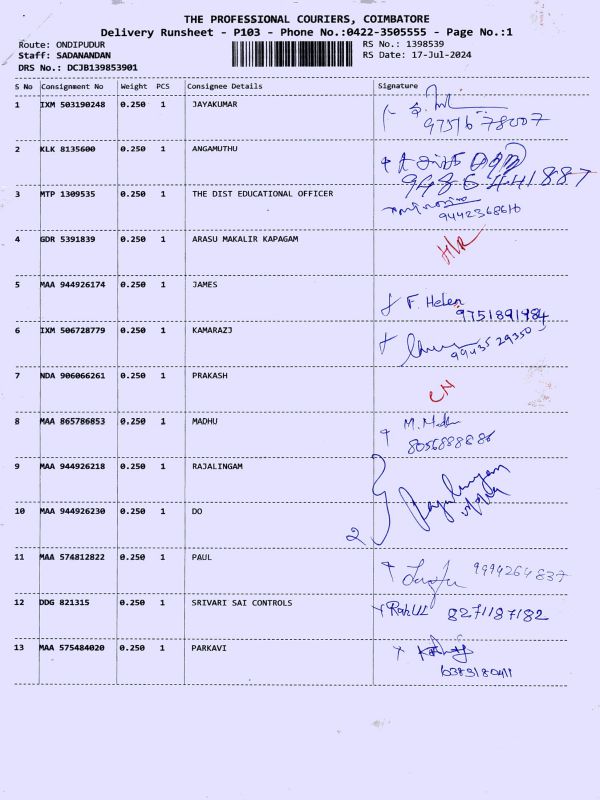 THE PROFESSIONAL COURIERS, COIMBATORE
Delivery Runsheet - P103 - Phone No.:0422-3505555 - Page No.:1
Route: ONDIPUDUR RS No.: 1398539
Staff: SADANANDAN RS Date: 17-Jul-2024
DRS No.: DCJB139853901
S No Consignment No Weight PCS Consignee Details Signature
1 IXM 503190248 0.250 1 JAYAKUMAR
9751678007
2 KLK 8135600 0.250 1 ANGAMUTHU
9486441887
3 MTP 1309535 0.250 1 THE DIST EDUCATIONAL OFFICER
9442368610
4 GDR 5391839 0.250 1 ARASU MAKALIR KAPAGAM
5 MAA 944926174 0.250 1 JAMES
F. Helen
9751891984
6 IXM 506728779 0.250 1 KAMARAZJ
9943529350
7 NDA 906066261 0.250 1 PRAKASH
CN
8 MAA 865786853 0.250 1 MADHU
M.
8056888886
9 MAA 944926218 0.250 1 RAJALINGAM
Rajalingam
10 MAA 944926230 0.250 1 DO
2
11 MAA 574812822 0.250 1 PAUL
9994264837
12 DDG 821315 0.250 1 SRIVARI SAI CONTROLS
Rahul 8271187182
13 MAA 575484020 0.250 1 PARKAVI
6383180411